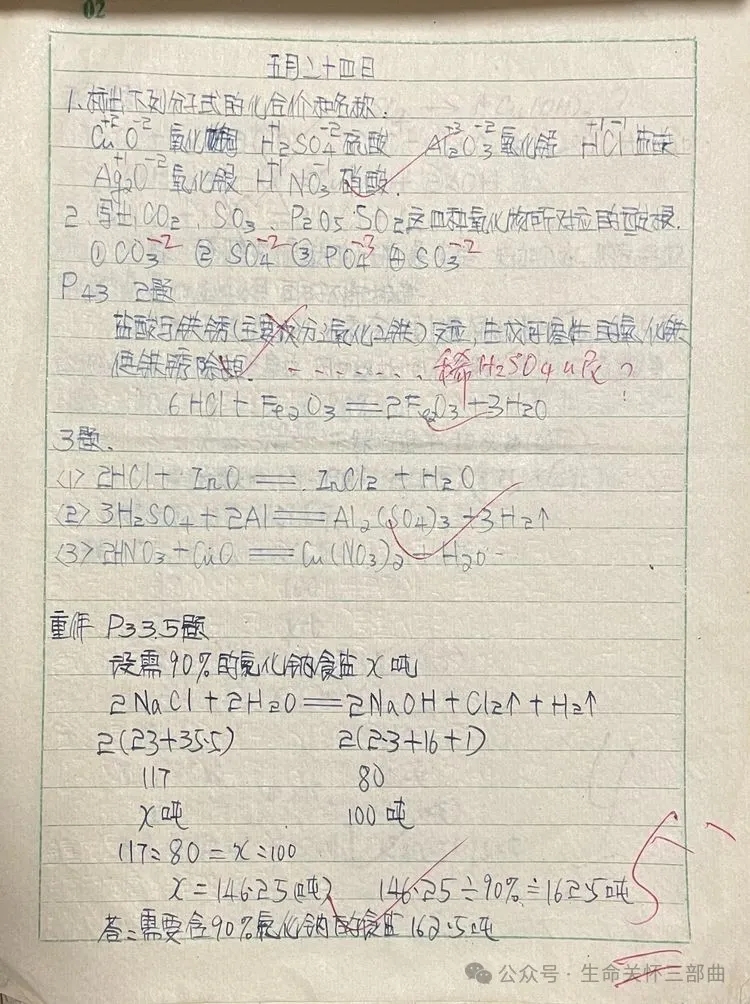 02
五月二十四日
1. 标出下列分子式的化合价和名称.
+2 -2 CuO 氧化铜 +1 -2 H2SO4 硫酸 +3 -2 Al2O3 氧化铝 +1 -1 HCl 盐酸
+1 -2 Ag2O 氧化银 +1 -1 HNO3 硝酸.
2. 写出CO2、SO3、P2O5、SO2这四种氧化物所对应的酸根.
① CO3-2 ② SO4-2 ③ PO4-3 ④ SO3-2
P43 2题
盐酸与铁锈(主要成分3氧化2铁)反应,生成可溶性的氯化铁
使铁锈除 . 稀H2SO4 ?
6HCl + Fe2O3 == 2Fe2O3 + 3H2O
3题.
<1> 2HCl + ZnO == ZnCl2 + H2O
<2> 3H2SO4 + 2Al == Al2(SO4)3 + 3H2↑
<3> 2HNO3 + CuO == Cu(NO3)2 + H2O
重作 P33.5题
设需90%的氯化钠食盐 x 吨
2NaCl + 2H2O == 2NaOH + Cl2↑ + H2↑
2(23+35.5) 2(23+16+1)
117 80
x 吨 100 吨
117:80 = x:100
x = 146.25(吨) 146.25÷90% = 162.5吨
答:需要含90%氯化钠的食盐162.5吨
5-
公众号 · 生命关怀三部曲